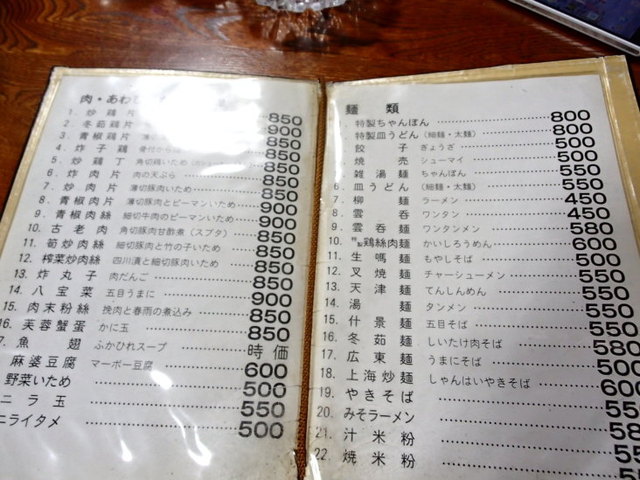 肉・あわび
1. 炒鶏片 850
2. 冬茹鶏片 900
3. 青椒鶏片 850
4. 炸子鶏 骨付から 850
5. 炒鶏丁 角切鶏いため 850
6. 炸肉片 肉の天ぷら 850
7. 炒肉片 薄切豚肉いため 850
8. 青椒肉片 薄切豚肉のピーマンいため 900
9. 青椒肉絲 細切牛肉のピーマンいため 900
10. 古老肉 角切豚肉甘酢煮(スブタ) 850
11. 筍炒肉絲 細切豚肉と竹の子いため 850
12. 榨菜炒肉絲 四川漬と細切豚肉いため 850
13. 炸丸子 肉だんご 850
14. 八宝菜 五目うまに 900
15. 肉末粉絲 挽肉と春雨の煮込み 850
16. 芙蓉蟹蛋 かに玉 850
7. 魚翅 ふかひれスープ 時価
麻婆豆腐 マーボー豆腐 600
野菜いため 500
ニラ玉 550
ニライタメ 500
麺類
特製ちゃんぽん 800
特製皿うどん(細麺・太麺) 800
餃子 ぎょうざ 500
焼売 シューマイ 500
雑湯麺 ちゃんぽん 550
6. 皿うどん(細麺・太麺) 550
7. 柳麺 ラーメン 450
8. 雲呑 ワンタン 450
9. 雲呑麺 ワンタンメン 580
10. 鶏絲肉麺 かいしろうめん 600
11. 生嗎麺 もやしそば 500
12. 叉焼麺 チャーシューメン 550
13. 天津麺 てんしんめん 550
14. 湯麺 タンメン 550
15. 什景麺 五目そば 550
16. 冬茹麺 しいたけ肉そば 580
17. 広東麺 うまにそば 550
18. 上海炒麺 しゃんはいやきそば 600
19. やきそば
20. みそラーメン
21. 汁米粉
22. 焼米粉